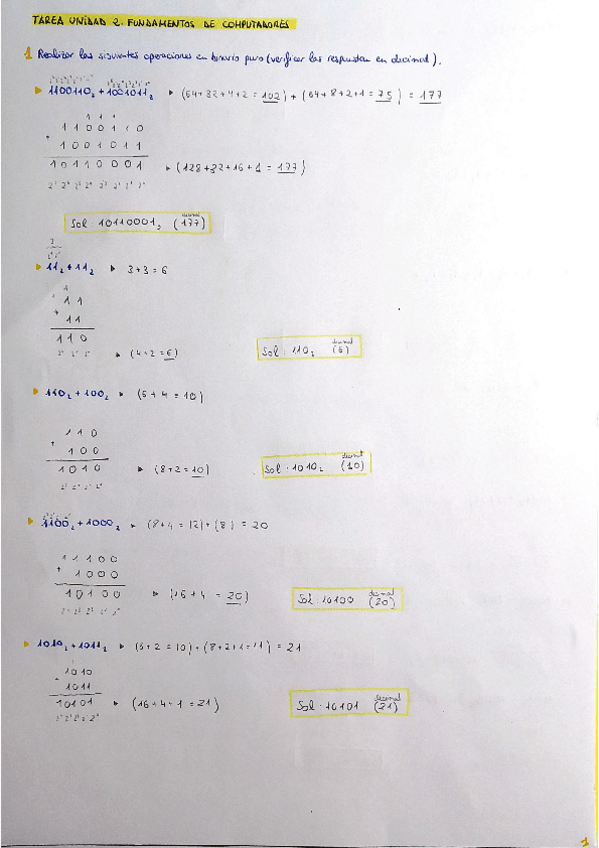 TAREA UNIDAD 2: FUNDAMENTOS DE COMPUTADORES
1 Realizar las siguientes operaciones en binario puro (verificar las respuestas en decimal).
▶ 1100110₂ + 1001011₂ ▶ (64+32+4+2 = 102) + (64+8+2+1 = 75) = 177
1 1 1
1 1 0 0 1 1 0
+ 1 0 0 1 0 1 1
1 0 1 1 0 0 0 1 ▶ (128+32+16+1 = 177)
2⁷ 2⁶ 2⁵ 2⁴ 2³ 2² 2¹ 2⁰
decimal
Sol: 10110001₂ (177)
3
▶ 11₂ + 11₂ ▶ 3+3 = 6
1
1 1
+ 1 1
1 1 0
2² 2¹ 2⁰ ▶ (4+2 = 6)
decimal
Sol: 110₂ (6)
▶ 110₂ + 100₂ ▶ (6+4 = 10)
1 1 0
+ 1 0 0
1 0 1 0 ▶ (8+2 = 10)
2³ 2² 2¹ 2⁰
decimal
Sol: 1010₂ (10)
▶ 1100₂ + 1000₂ ▶ (8+4 = 12) + (8) = 20
1 1 1 0 0
+ 1 0 0 0
1 0 1 0 0 ▶ (16+4 = 20)
2⁴ 2³ 2² 2¹ 2⁰
decimal
Sol: 10100 (20)
▶ 1010₂ + 1011₂ ▶ (8+2 = 10) + (8+2+1 = 11) = 21
1010
+ 1011
10101 ▶ (16+4+1 = 21)
2⁴ 2³ 2² 2¹ 2⁰
decimal
Sol: 10101 (21)
1